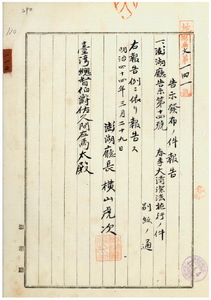 告示發布ノ件報告
一、澎湖廳告示第十四號 春季大清潔法施行ノ件
別紙ノ通
右報告例ニ依リ報告ス
明治四十四年三月二十九日
澎湖廳長 横山虎次
臺灣總督伯爵佐久間左馬太殿